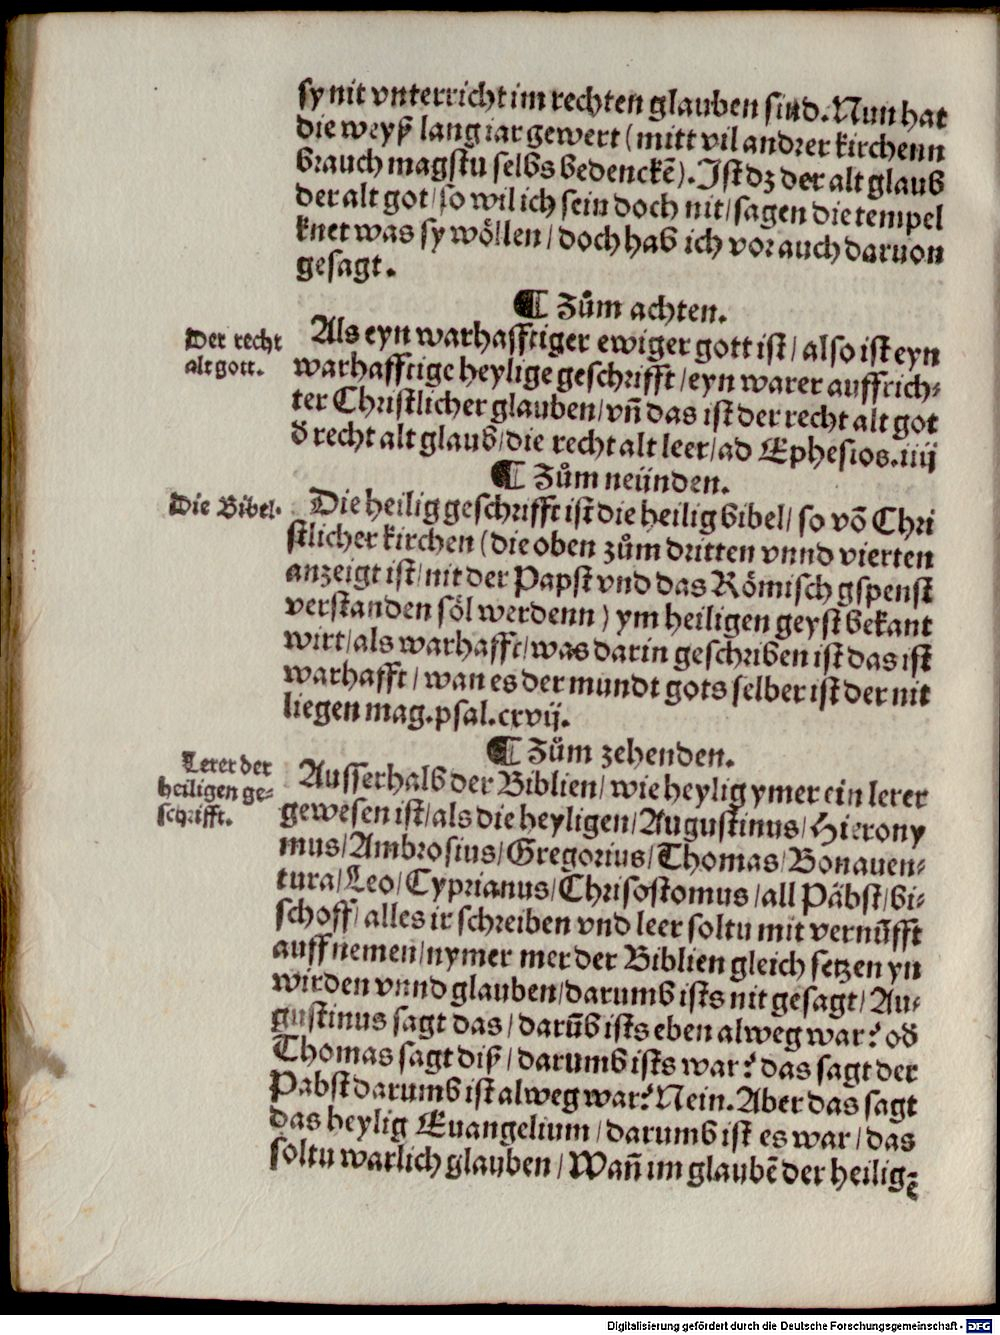 sy nit vnterricht im rechten glauben sind. Nun hat
die weyß lang iar gewert (mitt vil andrer kirchenn
brauch magstu selbs bedenckẽ). Ist dz der alt glaub
der alt got / so wil ich sein doch nit / sagen die tempel
knet was sy wöllen / doch hab ich vor auch daruon
gesagt.
¶ Zům achten.
Der recht
alt gott.
Als eyn warhafftiger ewiger gott ist / also ist eyn
warhafftige heylige geschrifft / eyn warer auffrich⸗
ter Christlicher glauben / vñ das ist der recht alt got
đ recht alt glaub / die recht alt leer / ad Ephesios. iiij
¶ Zům neünden.
Die Bibel.
Die heilig geschrifft ist die heilig bibel / so võ Chri
stlicher kirchen (die oben zům dritten vnnd vierten
anzeigt ist / nit der Papst vnd das Römisch gspenst
verstanden söl werdenn) ym heiligen geyst bekant
wirt / als warhafft / was darin geschriben ist das ist
warhafft / wan es der mundt gots selber ist der nit
liegen mag. psal. cxvij.
¶ Zům zehenden.
Lerer der
heiligen ge⸗
schrifft.
Ausserhalb der Biblien / wie heylig ymer ein lerer
gewesen ist / als die heyligen / Augustinus / Hierony
mus / Ambrosius / Gregorius / Thomas / Bonauen⸗
tura / Leo / Cyprianus / Chrisostomus / all Päbst / bi⸗
schoff / alles ir schreiben vnd leer soltu mit vernũfft
auff nemen / nymer mer der Biblien gleich setzen yn
wirden vnnd glauben / darumb ists nit gesagt / Au⸗
gustinus sagt das / darũb ists eben alweg war? ođ
Thomas sagt diß / darumb ists war? das sagt der
Pabst darumb ist alweg war? Nein. Aber das sagt
das heylig Euangelium / darumb ist es war / das
soltu warlich glauben / Wañ im glaubẽ der heilig⸗
ẽ
Digitalisierung gefördert durch die Deutsche Forschungsgemeinschaft - DFG